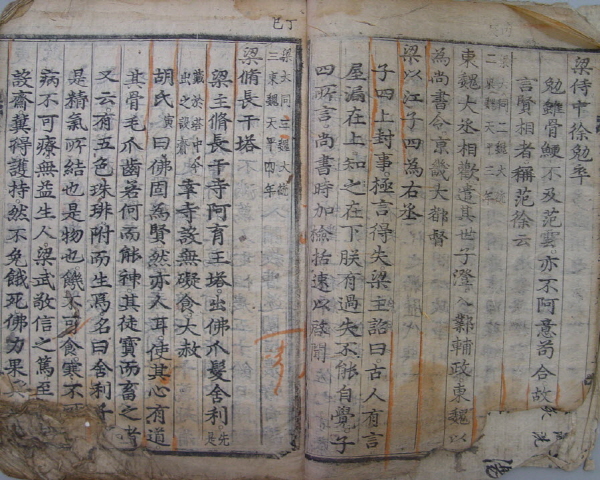 梁侍中徐勉卒
勉雖骨鯁不及范雲亦不阿意苟合故
言賢相者稱范徐云
東魏大丞相歡遣其世子澄入鄴輔政東魏以
為尚書令京畿大都督
梁以江子四為右丞
子四上封事極言得失梁主詔曰古人有言
屋漏在上知之在下朕有過失不能自覺子
四所言尚書時加檢括速以啓聞
丁巳
梁大同三魏大統
三東魏天平四年
梁脩長干塔
梁主脩長干寺阿育王塔出佛爪髮舍利先是
幸寺設無礙食大赦
胡氏寅曰佛固為賢然亦人耳使其心有道
其骨毛爪齒若何而能神其徒寶而畜之者
又云有五色珠琲附而生焉名曰舍利子
是精氣所結也是物也饑不可食寒不可
病不可療無益生人梁武敬信之篤至
設齋糞得護持然不免餓死佛力果